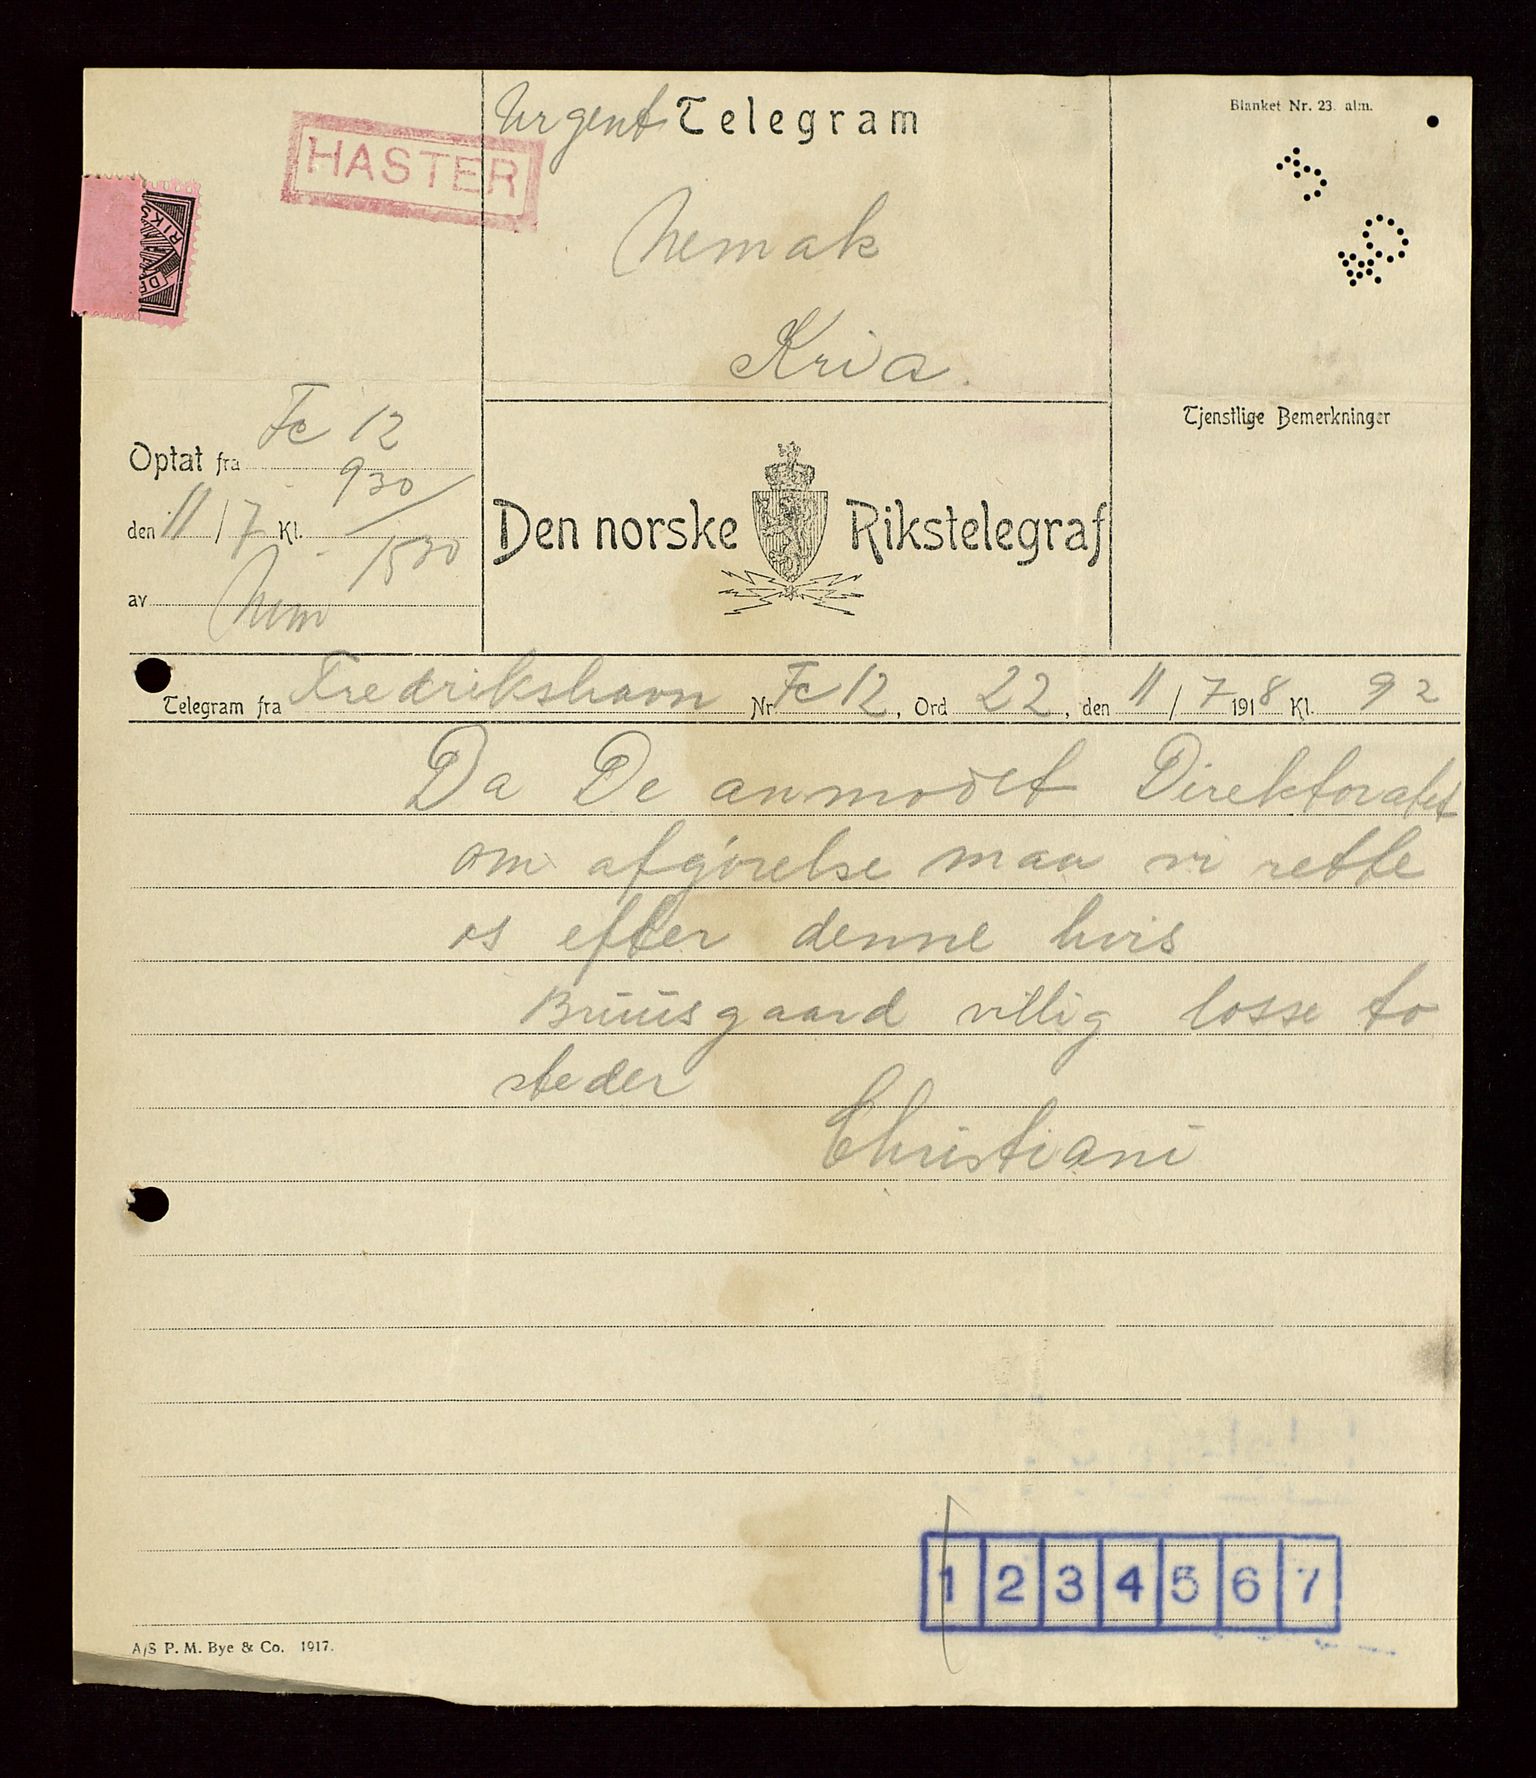 Urgent Telegram
Blanket Nr. 23. alm.
HASTER
Nemak
Kria.
Tjenstlige Bemerkninger
Optat fra Fc 12
den 11/7 Kl. 930/1530
av Nem
Den norske Rikstelegraf
Telegram fra Fredrikshavn Nr. Fc 12, Ord 22, den 11/7 1918 Kl. 92
Da De anmodet Direktoratet
om afgörelse maa vi rette
os efter denne hvis
Bruusgaard villig losse to
steder
Christiani
1 2 3 4 5 6 7
A/S P. M. Bye & Co. 1917.